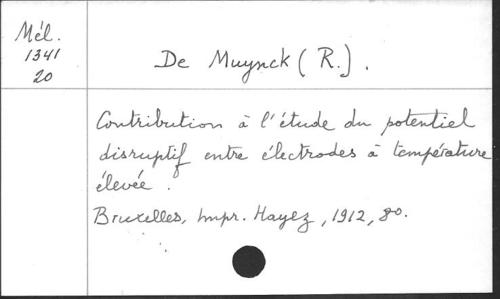 Mél.
1341
20
De Muynck (R.).
Contribution à l'étude du potentiel
disruptif entre électrodes à température
élevée.
Bruxelles, Impr. Hayez, 1912, 8o.